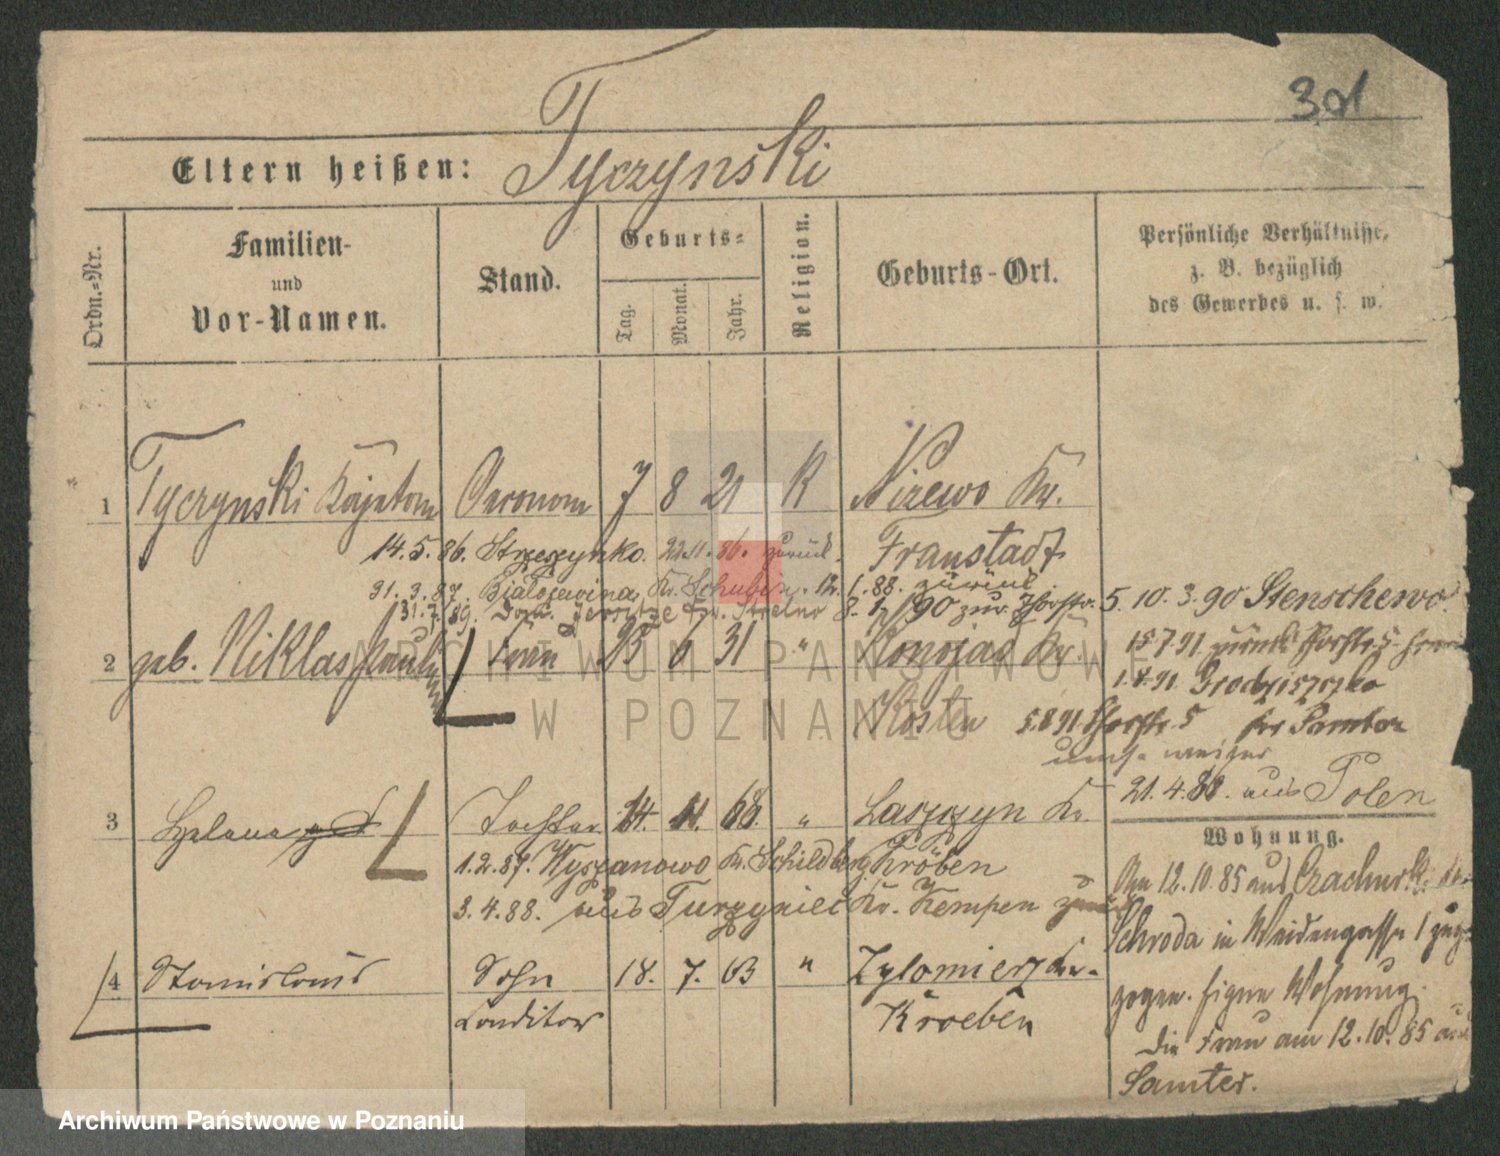 301
Eltern heißen: Tyczynski
Ordn.-Nr.
Familien- und Vor-Namen.
Stand.
Geburts-
Tag. Monat. Jahr.
Religion.
Geburts-Ort.
Persönliche Verhältnisse,
z. B. bezüglich
des Gewerbes u. s. w.
1 Tyczynski Kajetan Oeconom 7 8 21 K Nizewo Kr.
Fraustadt
14.5.86. Strzeszynko. 22.11.86. zurück.
31.3.87. Bialozewina, Kr. Schubin. 1.88. zurück
31.7.89. Dom. Jerzitze Kr. Strelno 8.1/90 zur. Thorstr. 5. 10.3.90 Stenschewo.
2 geb. Niklas Frau 6 31 " Konojad Kr.
Kosten
15.7.91 zurück Thorstr. 5
1.8.91 Grodziszczko
5.8.91 Thorstr. 5 Kr Samter
umst. weiter
21.4.88. aus Polen
3 Helena Tochter 14. 11. 68. " Laszczyn Kr
Kröben
1.2.87. Wyszanowo Kr. Schildberg
3.4.88. aus Turzyniec Kr. Kempen zurück
4 Stanislaus Sohn 18. 7. 63 " Zylomierz Kr.
Conditor Kroeben
Wohnung.
Am 12.10.85 aus
Schroda in Weidengasse 1 zuge-
zogen. Eigene Wohnung.
Die Frau am 12.10.85 aus
Samter.
ARCHIWUM PAŃSTWOWE
W POZNANIU
Archiwum Państwowe w Poznaniu